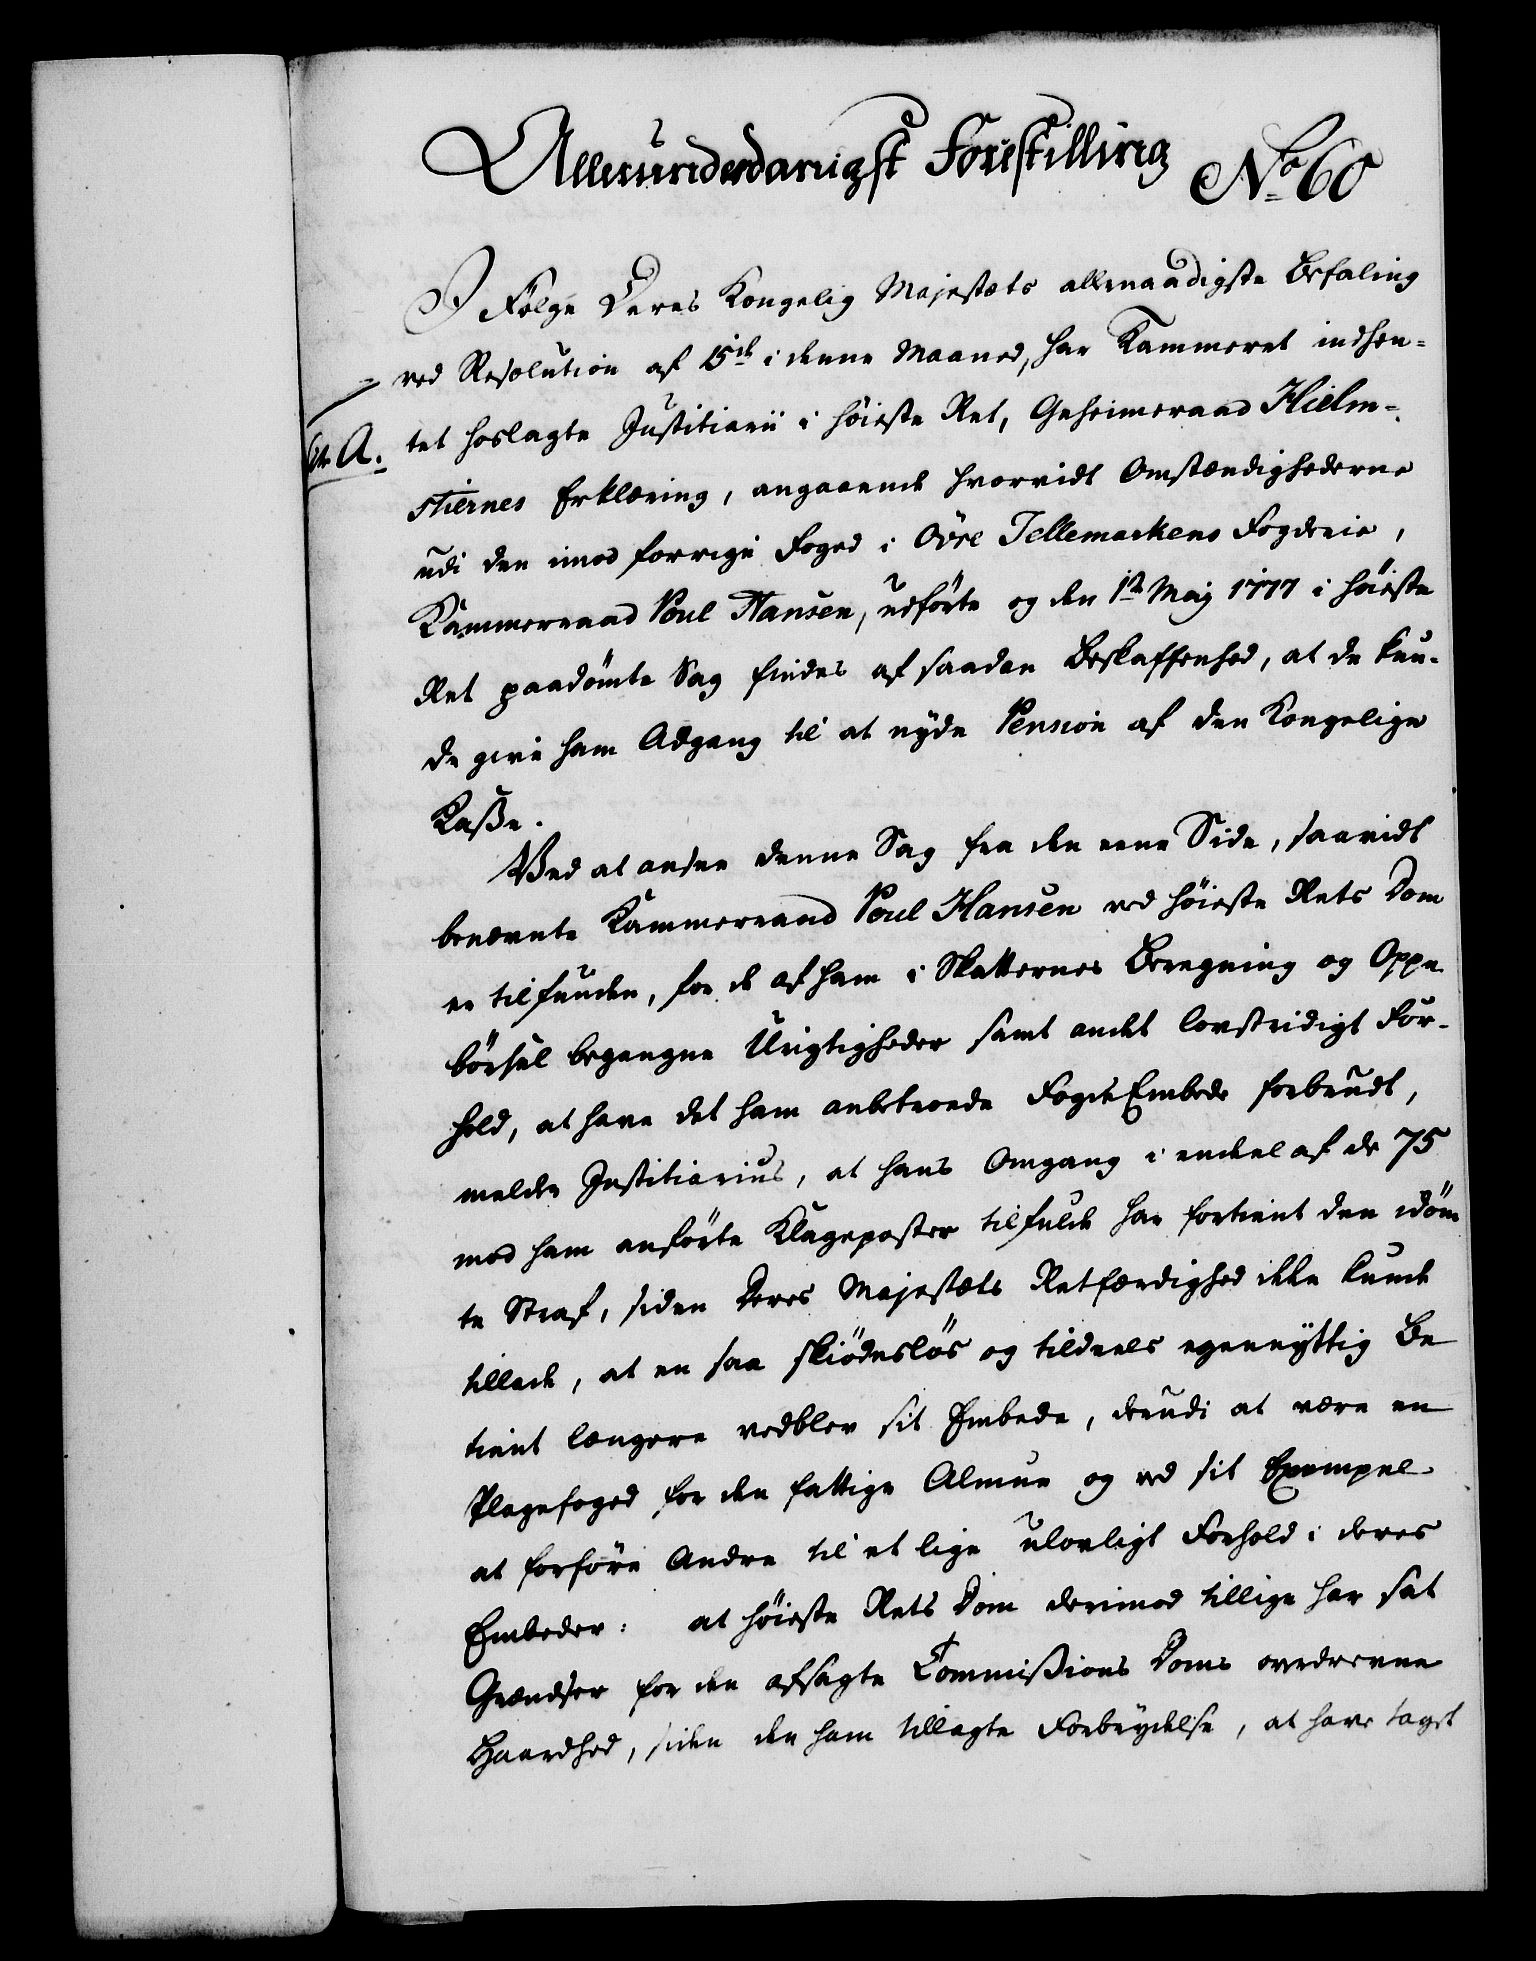 Allerunderdanigst Forestilling No. 60
I Følge Deres Kongelig Majestæts allernaadigste Befaling
ved Resolution af 15de i denne Maaned, har Kammeret indhen-
Litr. A. tet hoslagte Justitiarii i høieste Ret, Geheimeraad Hielm-
stiernes Erklæring, angaaende hvorvidt Omstændighederne
udi den imod forrige Foged i Øvre Tellemarkens Fogderie,
Kammerraad Poul Hansen, udførte og den 1te Maj 1777 i høieste
Ret paadömte Sag findes af saadan Beskaffenhed, at de kun-
de give ham Adgang til at nyde Pension af den Kongelige
Kaße.
Ved at ansee denne Sag fra den eene Side, saavidt
benævnte Kammerraad Poul Hansen ved høieste Rets Dom
er tilfunden, for de af ham i Skatternes Beregning og Oppe
børsel begangne Urigtigheder samt andet lovstridigt For-
hold, at have det ham anbetroede Fogde Embede forbrudt,
melder Justitiarius, at hans Omgang i endeel af de 75
mod ham anførte Klageposter tilfulde har fortient den idöm
te Straf, siden Deres Majestæts Retfærdighed ikke kunde
tillade, at en saa skiödeslös og tildeels egennyttig Be
tient længere vedblev sit Embede, derudi at være en
Plagefoged for den fattige Almue og ved sit Exempel
at forføre Andre til et lige ulovligt Forhold i deres
Embeder: at høieste Rets Dom derimod tillige har sat
Grændser for den afsagte Commißions Doms overdrevne
Haardhed, siden den ham tillagte Forbrydelse, at have taget